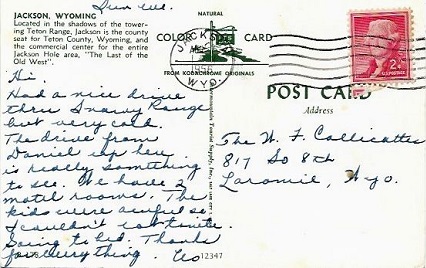 Sun eve.
JACKSON, WYOMING
Located in the shadows of the tower-
ing Teton Range, Jackson is the county
seat for Teton County, Wyoming, and
the commercial center for the entire
Jackson Hole area, "The Last of the
Old West".
NATURAL
COLOR CARD
FROM KODACHROME ORIGINALS
JACKSON
1956
WYO.
2¢
POST CARD
Address
Hi,
Had a nice drive
thru Snowy Range
but very cold.
The drive from
Daniel up here
is really something
to see. We have 2
motel rooms. The
kids were awful so
I couldn't eat tonite.
Going to bed. Thanks
for everything.
The W. F. Callicottes
817 So 8th
Laramie, Wyo.
12347